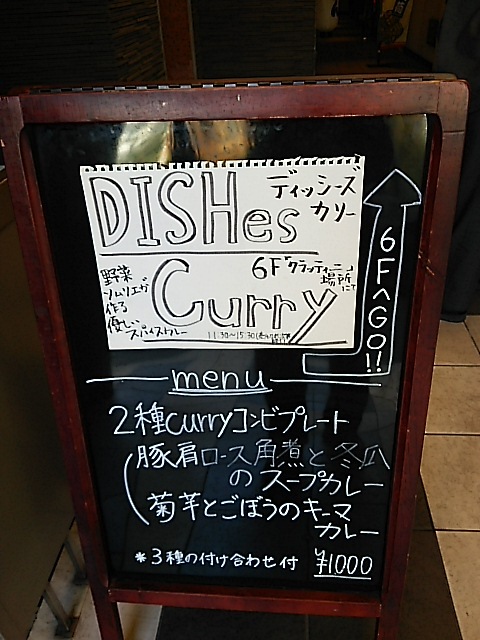 DISHes
ディッシーズ
カリー
Curry
6F「クラッティーニ」
場所
にて
野菜
ソムリエが
作る
優しい
スパイスカレー
11:30〜15:30
6Fへ GO!!
menu
2種curryコンビプレート
豚肩ロース角煮と冬瓜
のスープカレー
菊芋とごぼうのキーマ
カレー
*3種の付け合わせ付 ¥1000